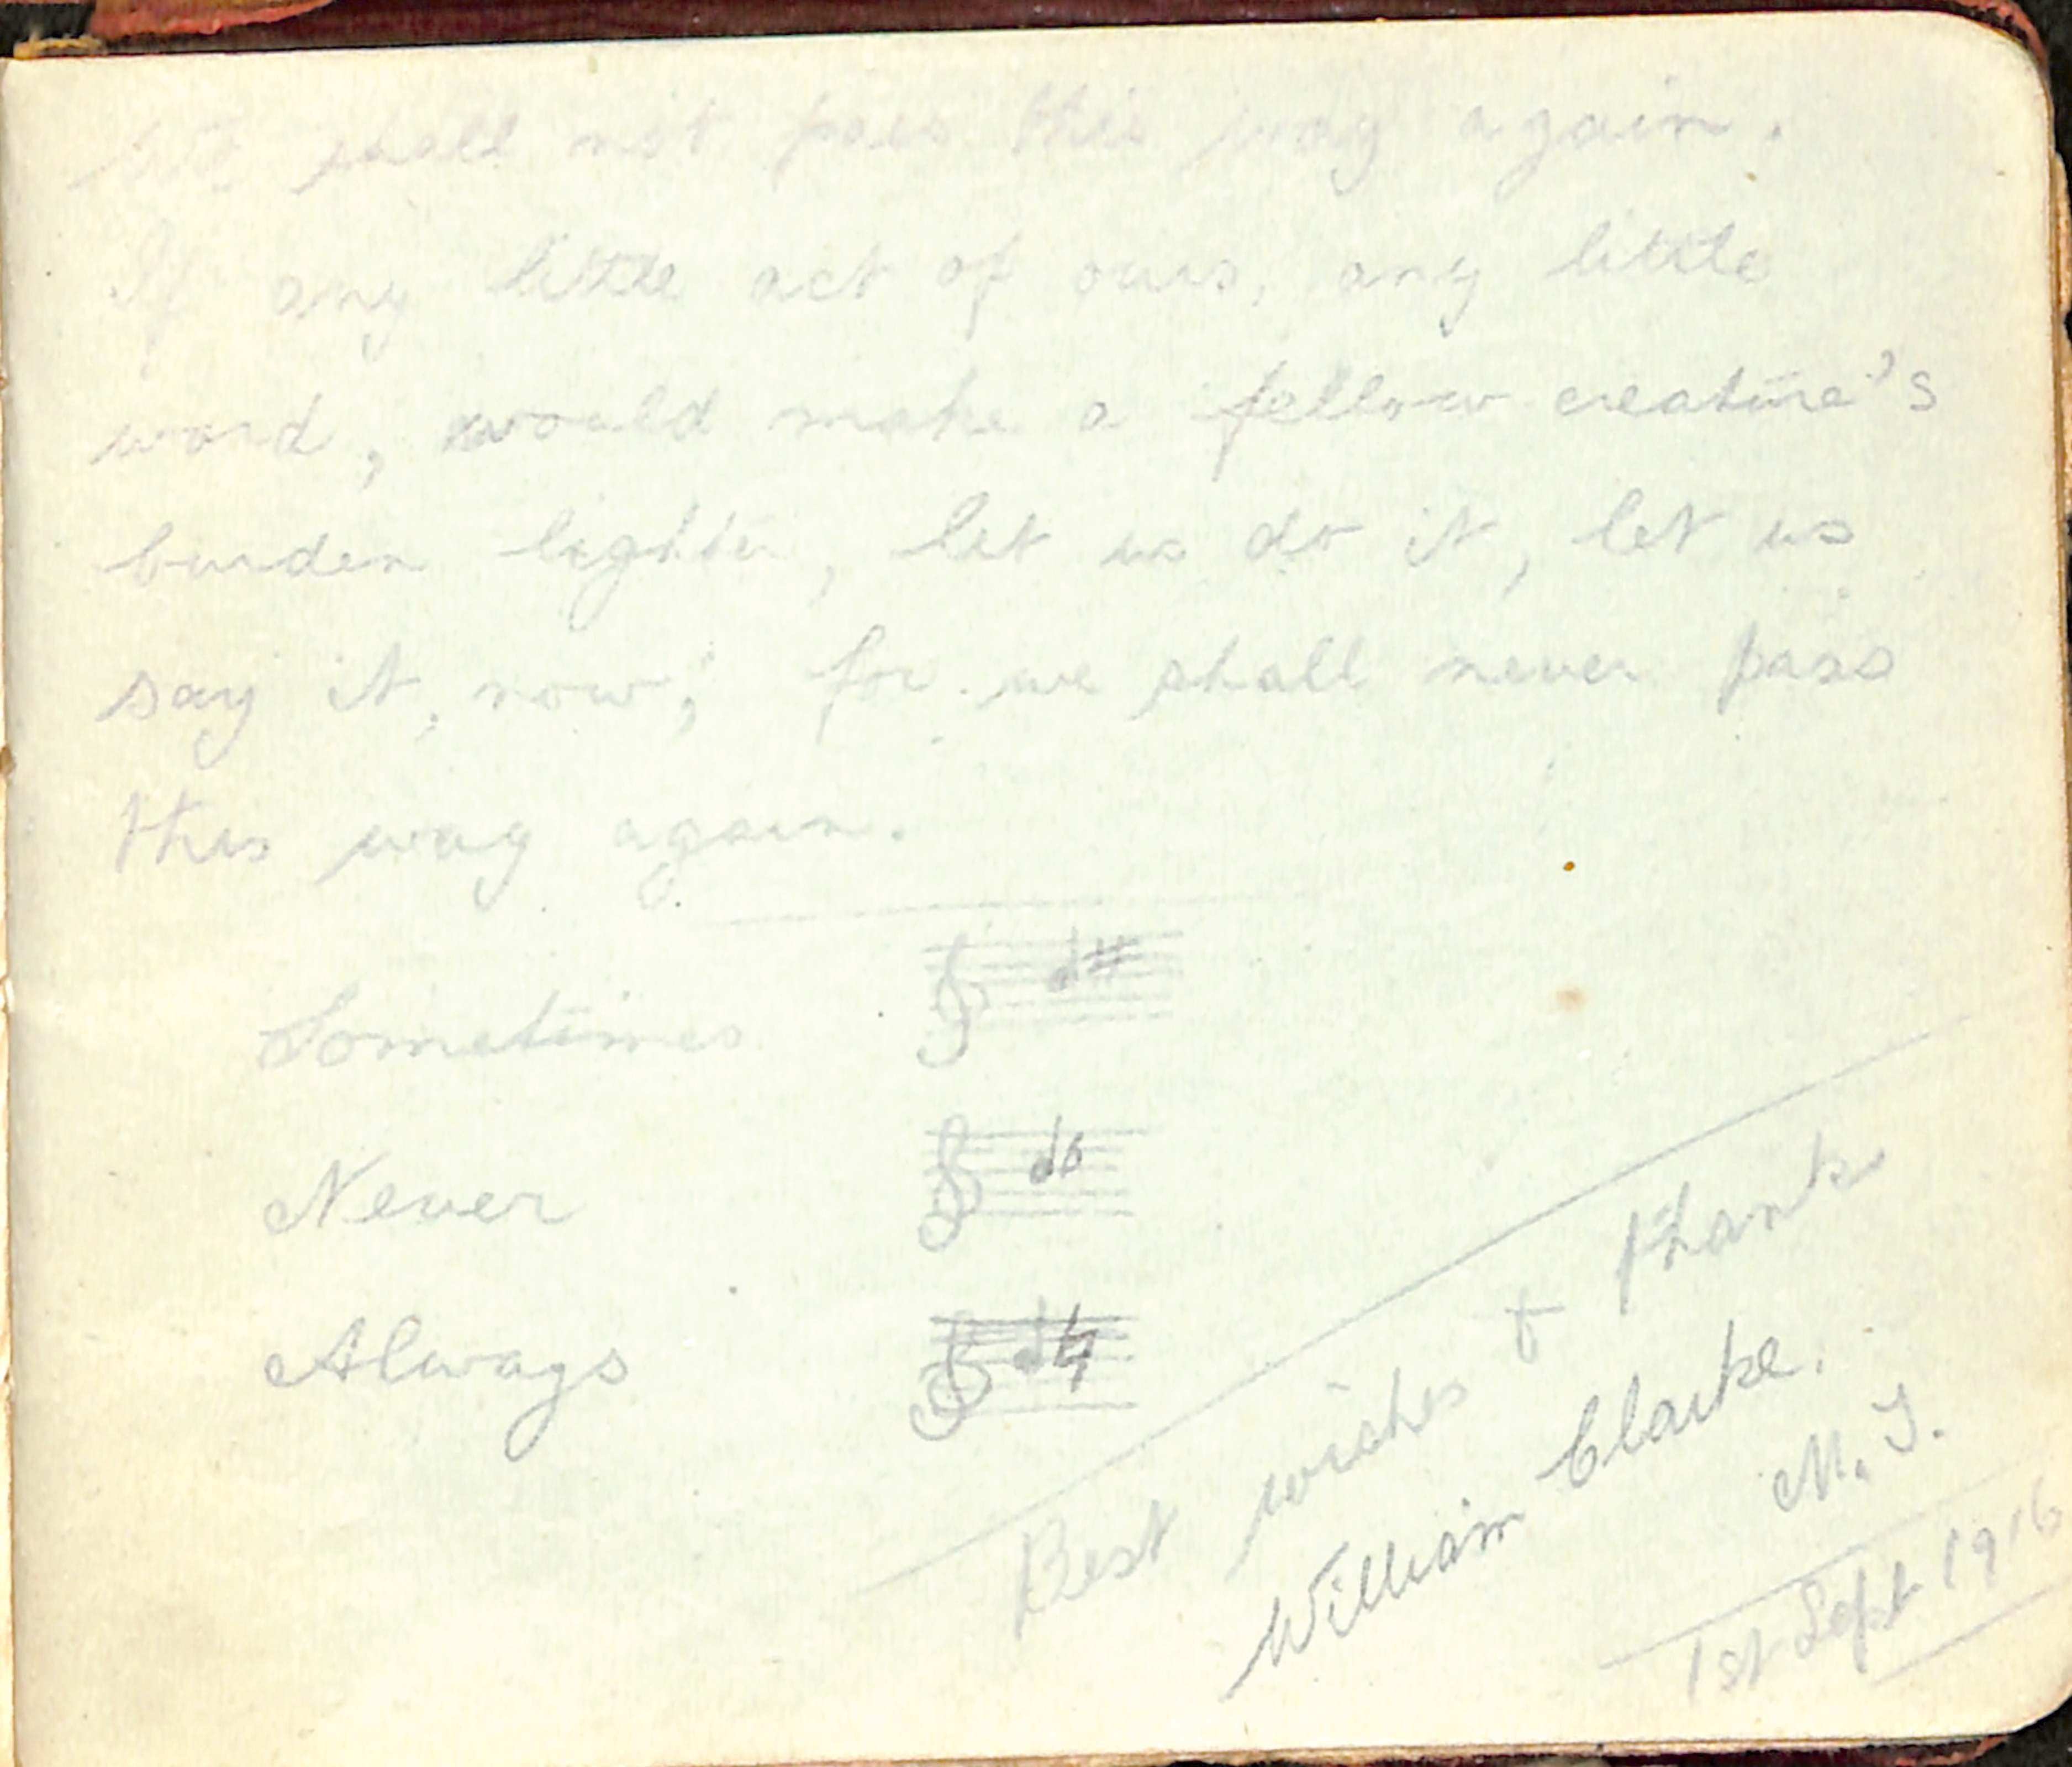 We shall not pass this way again.
If any little act of ours, any little
word, would make a fellow creature's
burden lighter, let us do it, let us
say it, now; for we shall never pass
this way again.
Sometimes
Never
Always
Best wishes & thanks
William Clarke.
M. T.
1st Sept 1916